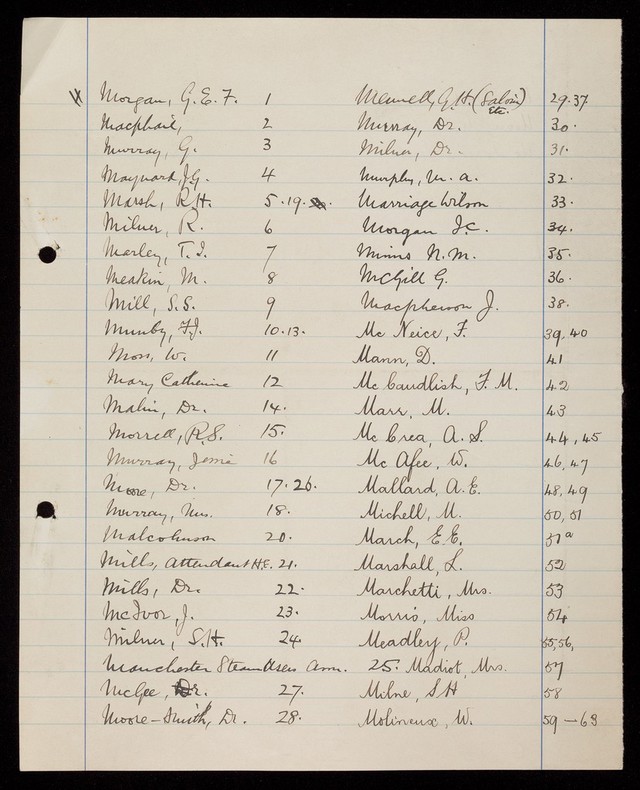 Morgan, G.E.F. 1 Mennell, G.H. (Salvin) etc. 29.37
Macphail, 2 Murray, Dr. 30.
Murray, G. 3 Milner, Dr. 31.
Maynard, J.G. 4 Murphy, W. A. 32.
Marsh, R.H. 5.19. Marriage Wilson 33.
Milner, R. 6 Morgan J.C. 34.
Marley, T.J. 7 Mimms N.M. 35.
Meakin, M. 8 McGill G. 36.
Mill, S.S. 9 Macpherson J. 38.
Munby, F.J. 10.13. Mc Neice, F. 39, 40
Moss, W. 11 Mann, D. 41
Mary Catherine 12 Mc Caudlish, F.M. 42
Malin, Dr. 14. Marr, M. 43
Morrell, R.S. 15. Mc Crea, A.S. 44, 45
Murray, Jessie 16 Mc Afee, W. 46, 47
Moore, Dr. 17.26. Mallard, A.E. 48, 49
Murray, Mrs. 18. Michell, M. 50, 51
Malcolmson 20. March, E.E. 51a
Mills, Attendant H.E. 21. Marshall, L. 52
Mills, Dr. 22. Marchetti, Mrs. 53
McIvor, J. 23. Morris, Miss 54
Milner, S.H. 24 Meadley, P. 55,56,
Manchester Steam Users Assn. 25. Madiot, Mrs. 57
McGee, Dr. 27. Milne, SH 58
Moore-Smith, Dr. 28. Molineux, W. 59-63